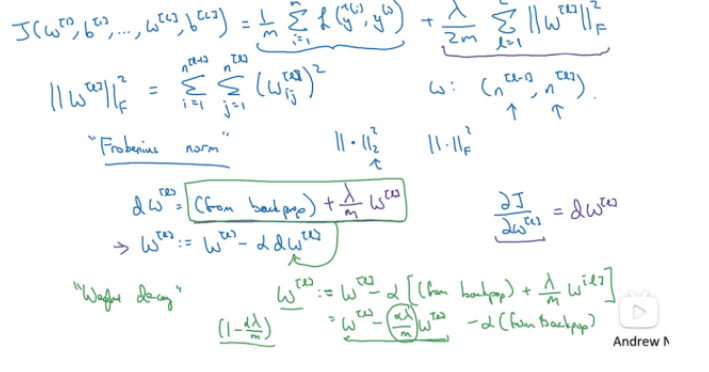 J(w^[1], b^[1], ..., w^[L], b^[L]) = 1/m Σ_{i=1}^{m} L(ŷ^(i), y^(i)) + λ/2m Σ_{l=1}^{L} ||w^[l]||²_F
||w^[l]||²_F = Σ_{i=1}^{n^[l-1]} Σ_{j=1}^{n^[l]} (w_ij^[l])² w: (n^[l-1], n^[l]).
"Frobenius norm" ||·||²_2 ||·||²_F
dw^[l] = (from backprop) + λ/m w^[l] ∂J/∂w^[l] = dw^[l]
→ w^[l] := w^[l] - α dw^[l]
"Weight decay" w^[l] := w^[l] - α[(from backprop) + λ/m w^[l]]
(1 - αλ/m) = w^[l] - αλ/m w^[l] - α(from backprop)
Andrew N